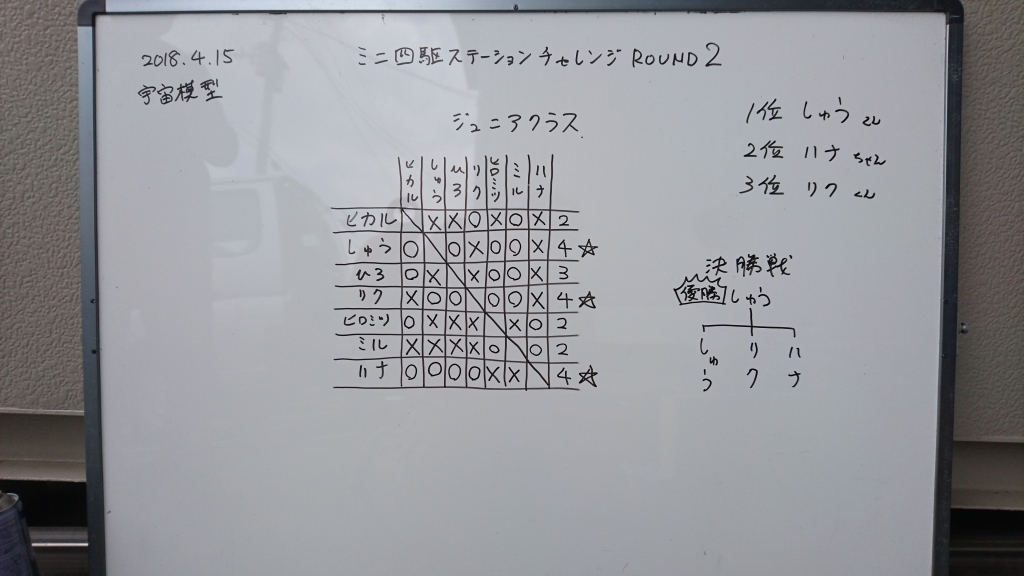 2018.4.15
宇宙模型
ミニ四駆ステーションチャレンジ ROUND 2
ジュニアクラス
ヒカル しゅう ひろ リク ヒロミツ ミル ハナ
ヒカル \ X X O X O X 2
しゅう O \ O X O O X 4 ☆
ひろ O X \ X O O X 3
リク X O O \ O O X 4 ☆
ヒロミツ O X X X \ X O 2
ミル X X X X O \ O 2
ハナ O O O O X X \ 4 ☆
1位 しゅう くん
2位 ハナ ちゃん
3位 リク くん
決勝戦
優勝 しゅう
しゅう リク ハナ